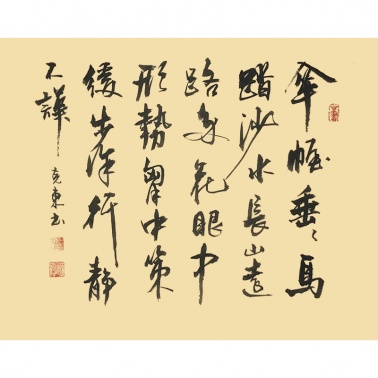 傘幄垂〻馬
踏沙水長山遠
路多花眼中
形勢胷中策
緩步徐行靜
不譁 克東书